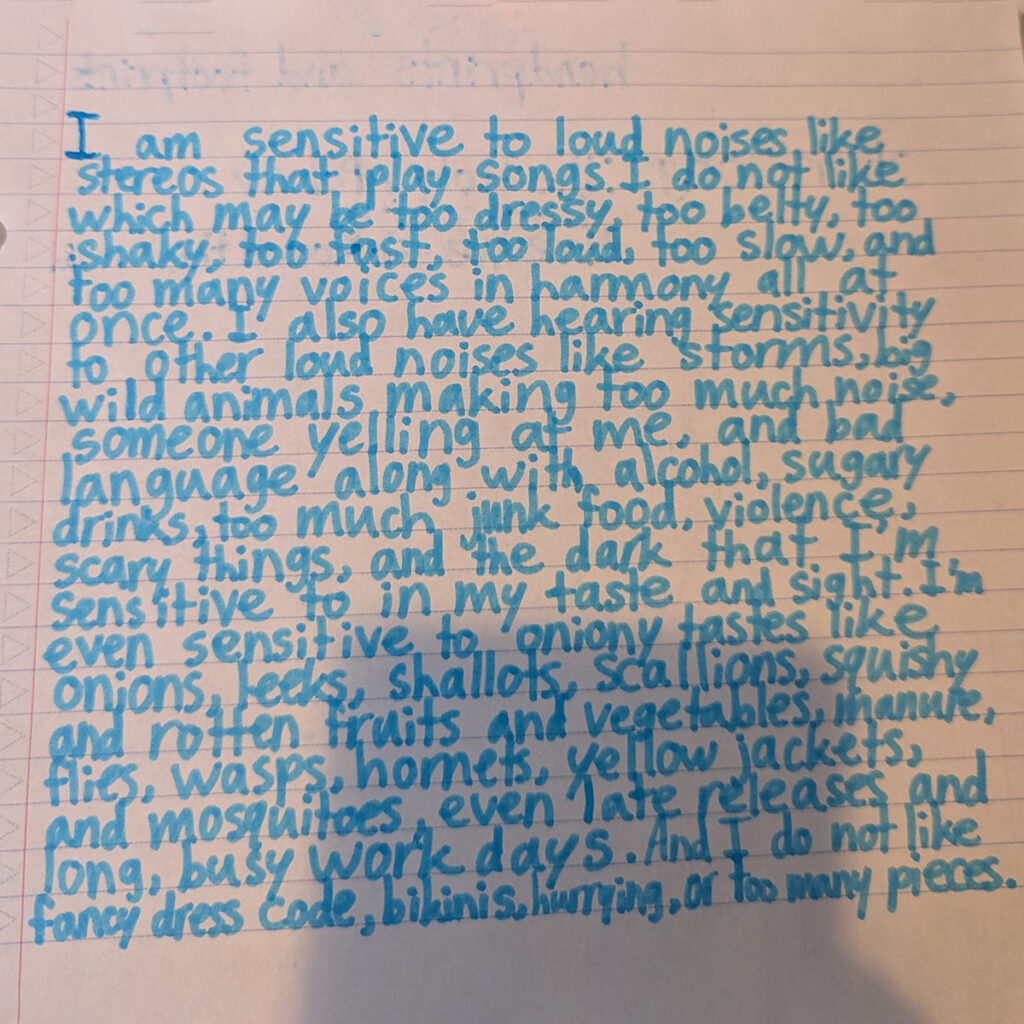 I am sensitive to loud noises like
stereos that play songs I do not like
which may be too dressy, too belty, too
shaky, too fast, too loud, too slow, and
too many voices in harmony all at
once. I also have hearing sensitivity
to other loud noises like storms, big
wild animals making too much noise,
someone yelling at me, and bad
language along with alcohol, sugary
drinks, too much junk food, violence,
scary things, and the dark that I'm
sensitive to in my taste and sight. I'm
even sensitive to oniony tastes like
onions, leeks, shallots, scallions, squishy
and rotten fruits and vegetables, manure,
flies, wasps, hornets, yellow jackets,
and mosquitoes, even late releases and
long, busy work days. And I do not like
fancy dress code, bikinis, hurrying, or too many pieces.